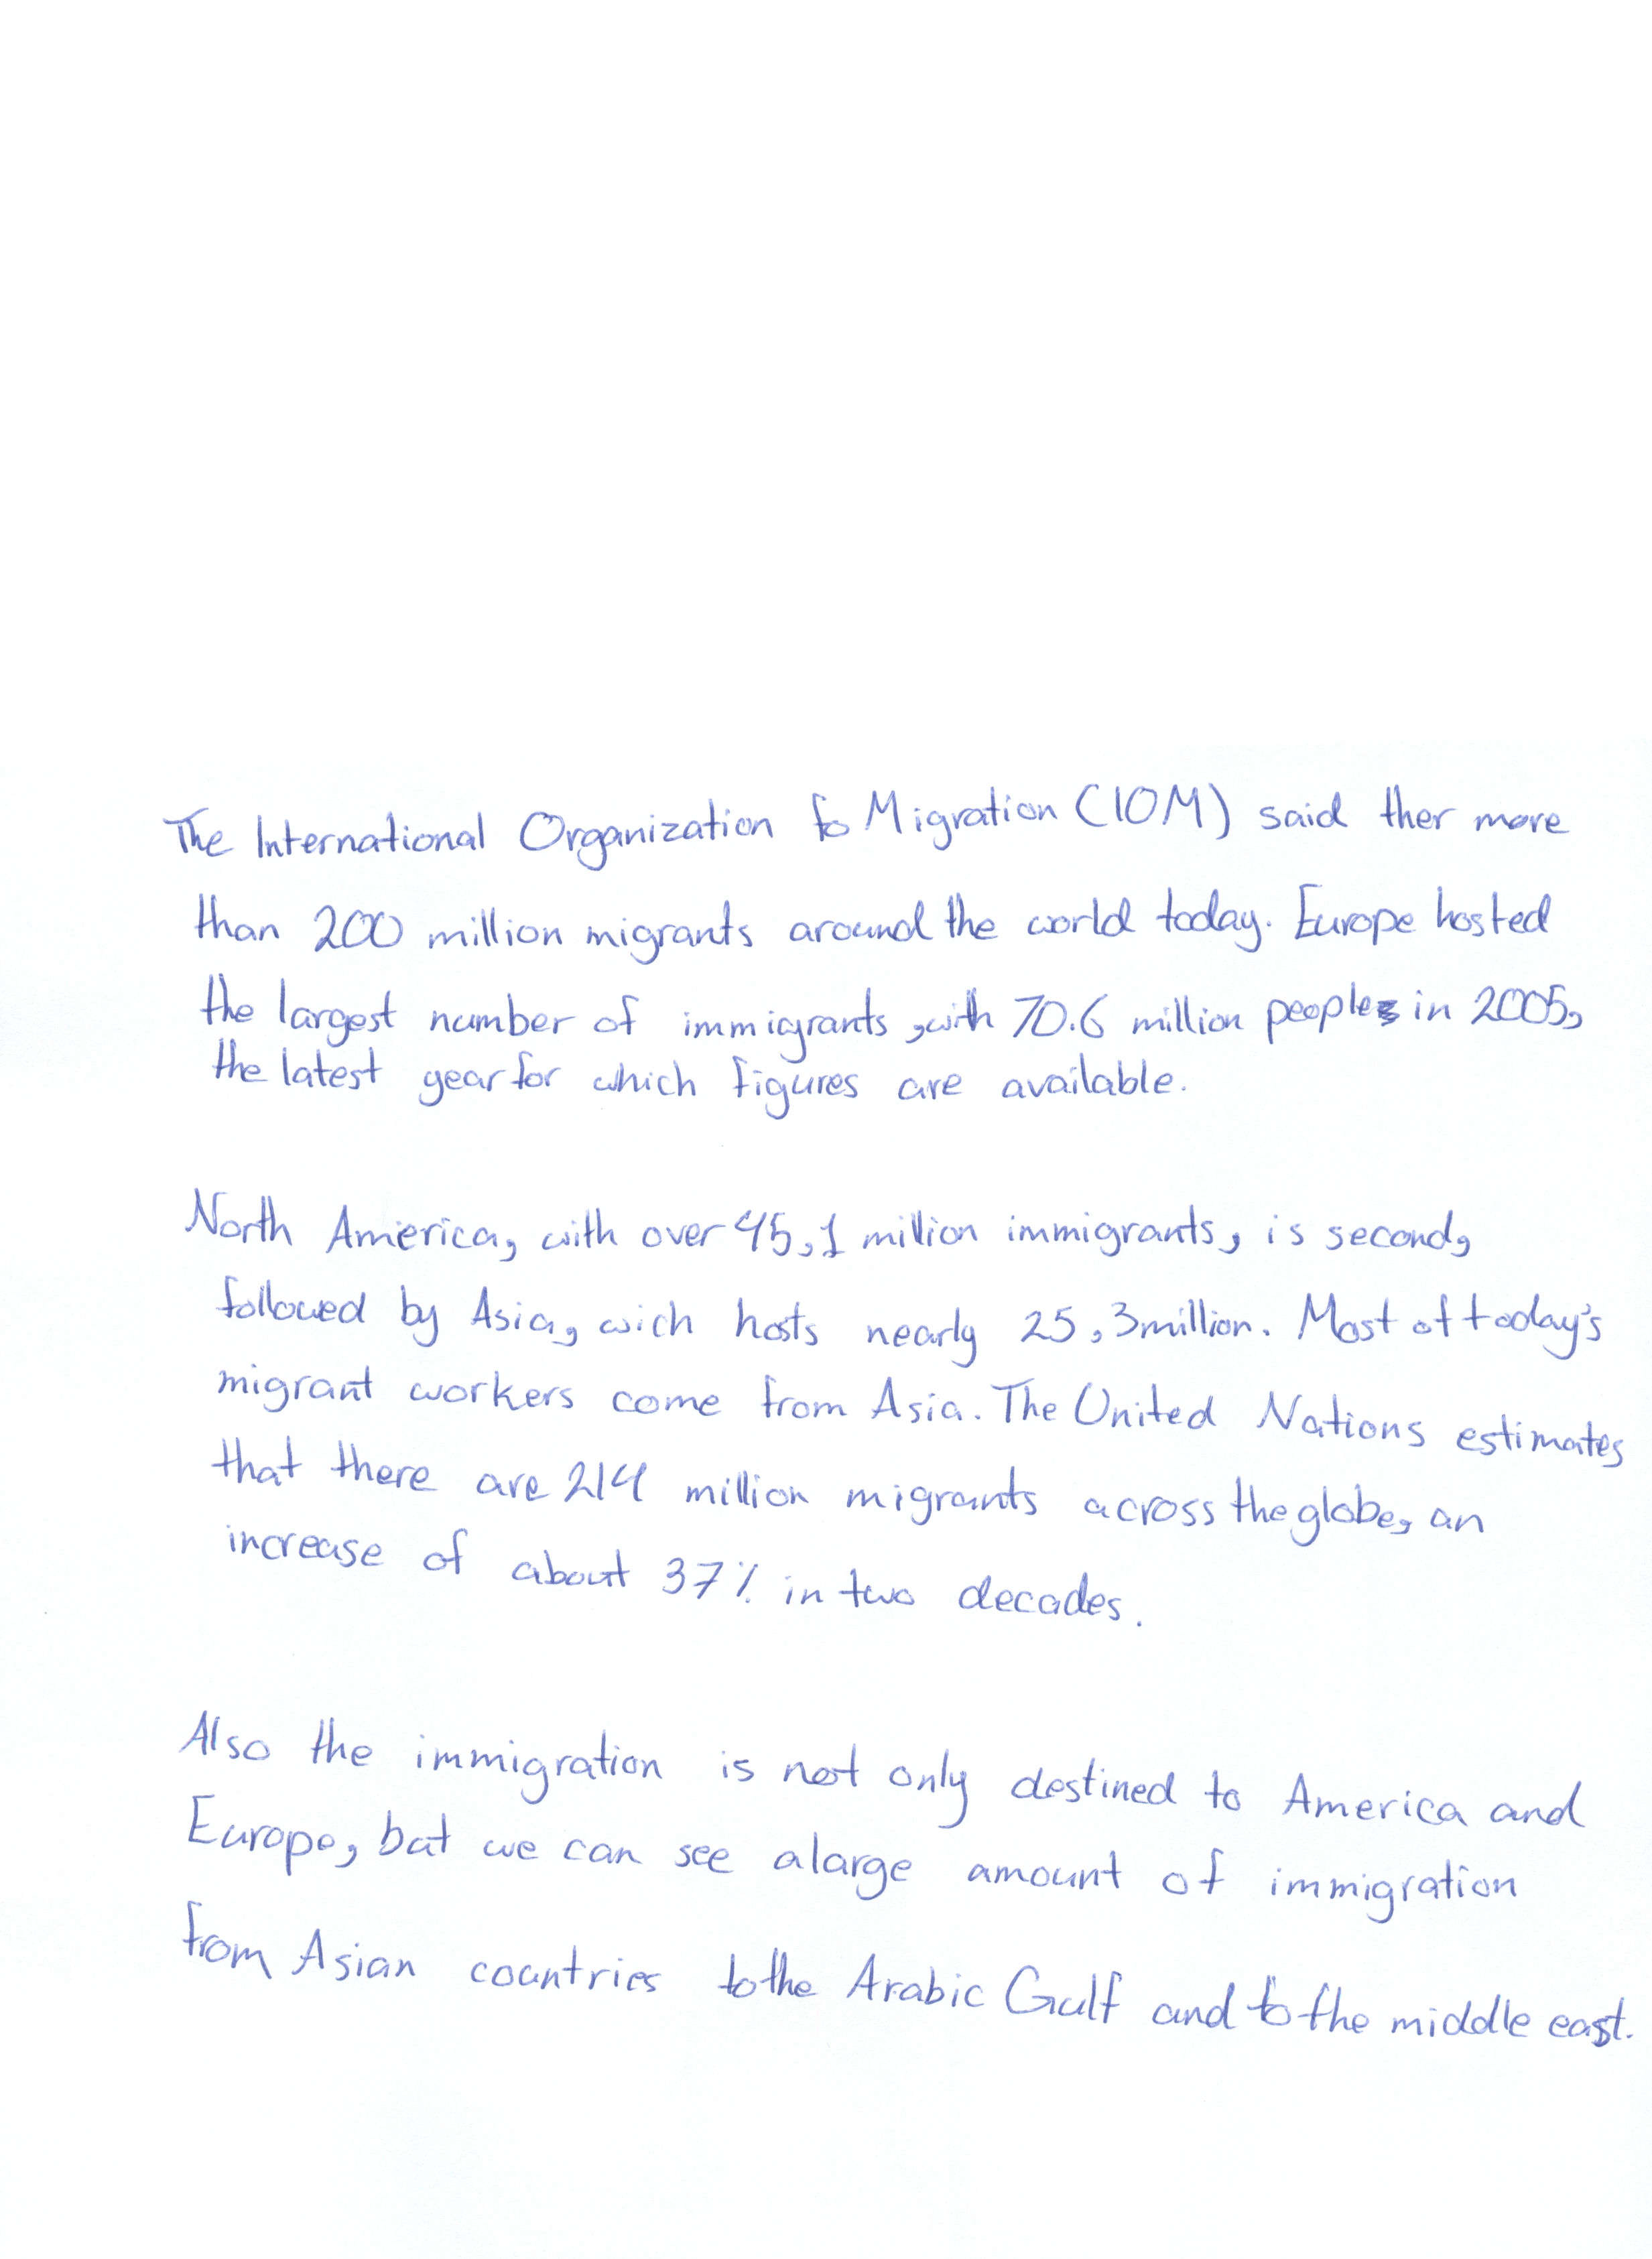 The International Organization fo Migration (IOM) said ther more
than 200 million migrants around the world today. Europe hosted
the largest number of immigrants ,with 70.6 million people in 2005,
the latest year for which figures are available.
North America, with over 45,1 million immigrants, is second,
followed by Asia, wich hosts nearly 25,3million. Most of today's
migrant workers come from Asia. The United Nations estimates
that there are 214 million migrants across the globe, an
increase of about 37% in two decades.
Also the immigration is not only destined to America and
Europe, but we can see alarge amount of immigration
from Asian countries to the Arabic Gulf and to the middle east.